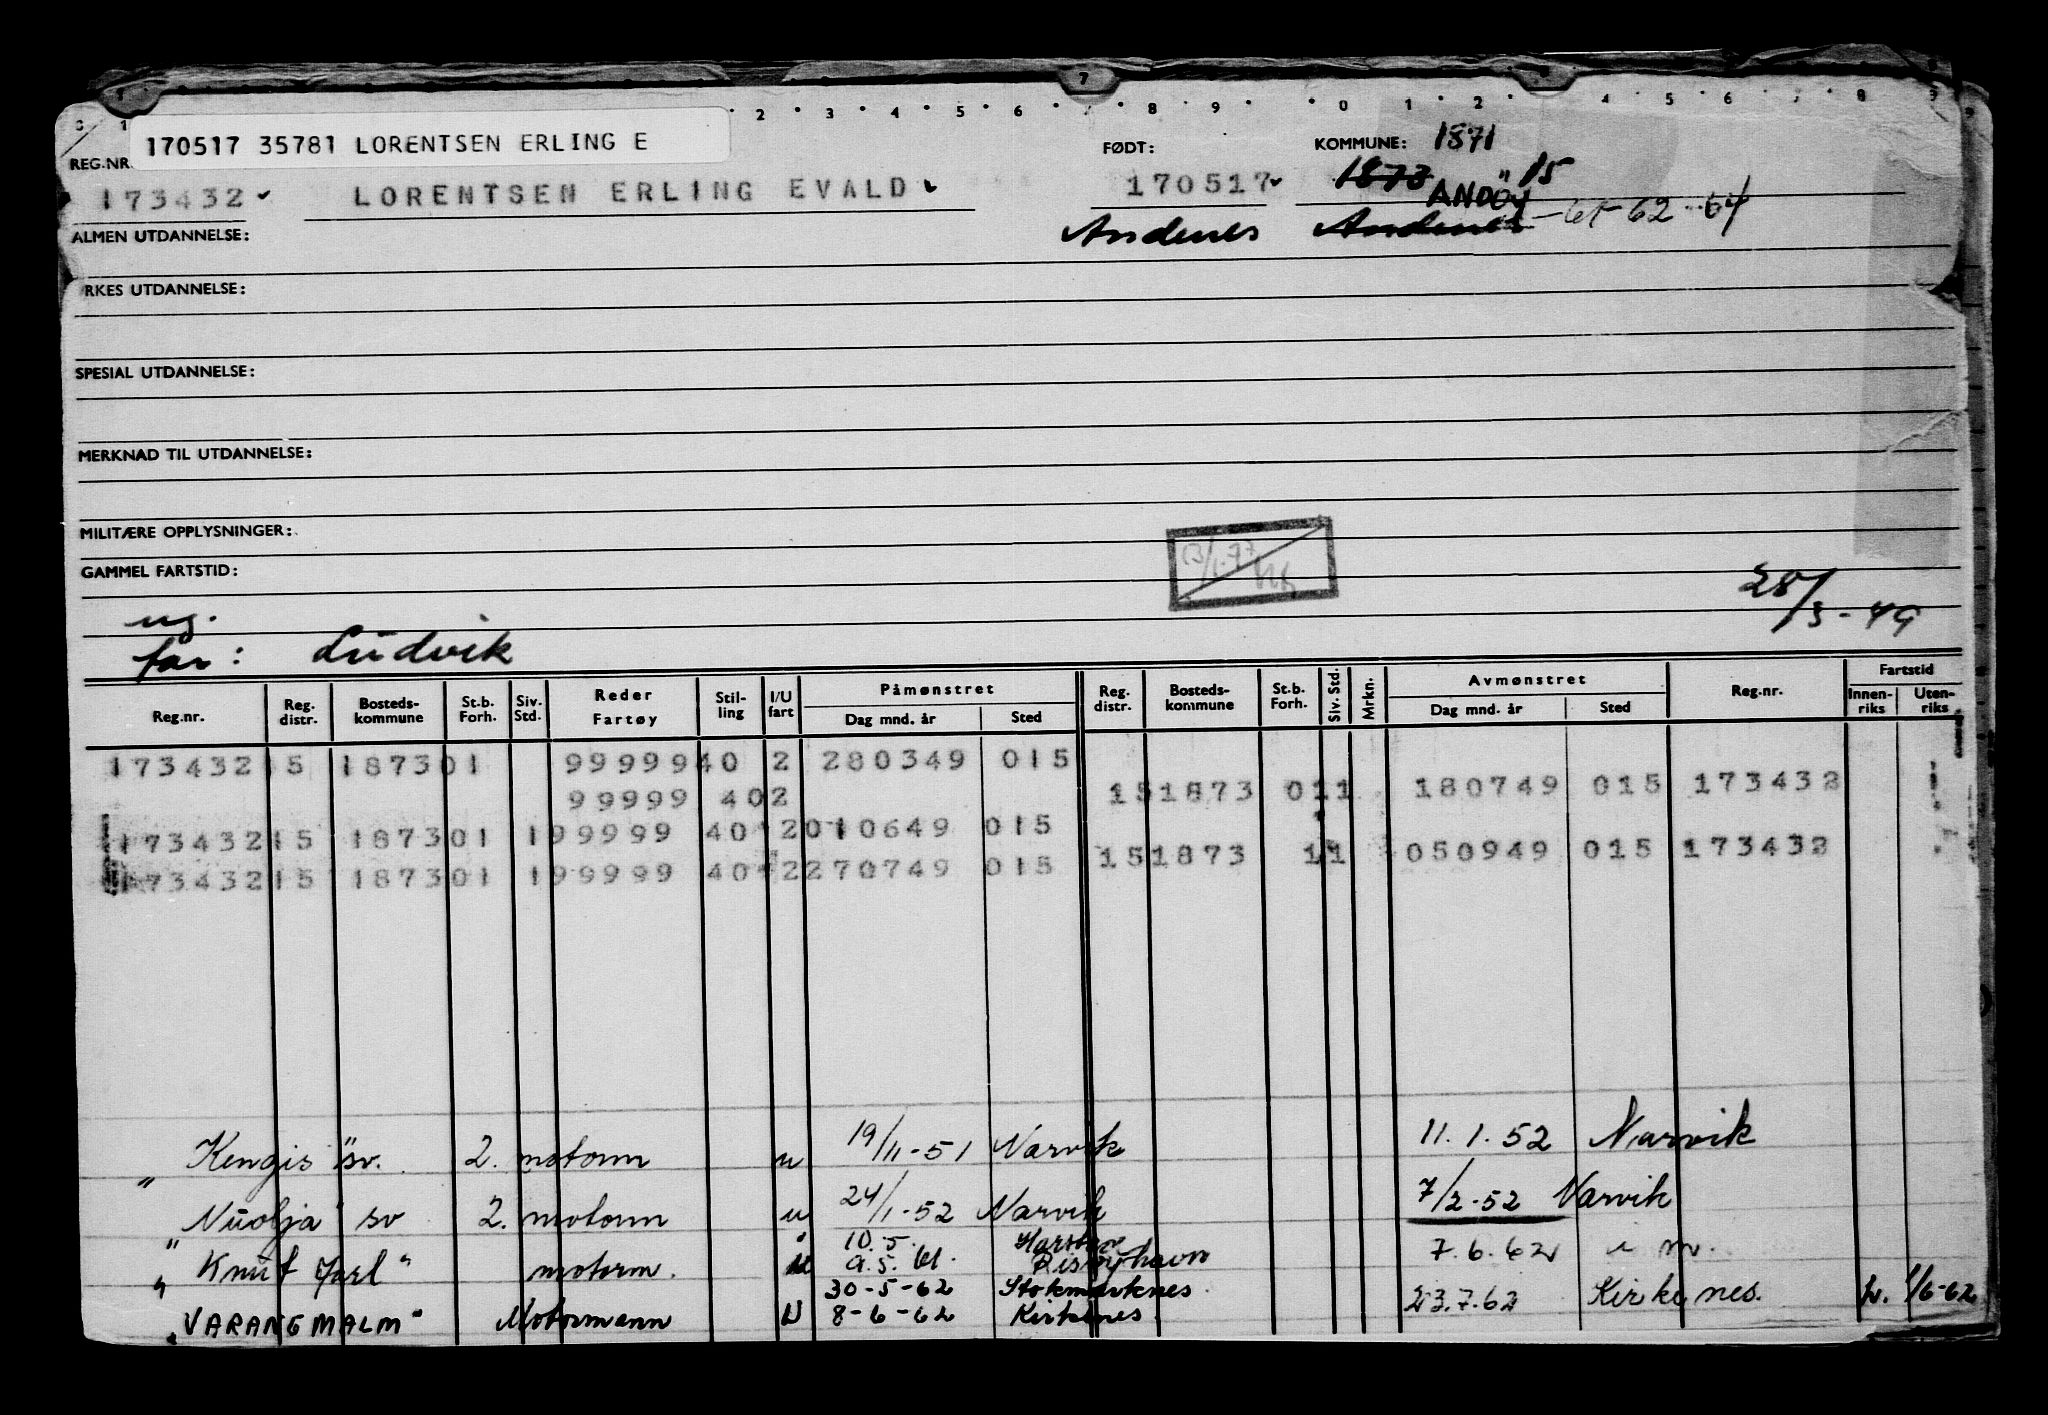 170517 35781 LORENTSEN ERLING E
REG.NR. FØDT: KOMMUNE: 1871
173432 LORENTSEN ERLING EVALD 170517 1873 15
ANDÖY
ALMEN UTDANNELSE: Andenes Andenes - 61-62-64
YRKES UTDANNELSE:
SPESIAL UTDANNELSE:
MERKNAD TIL UTDANNELSE:
MILITÆRE OPPLYSNINGER:
GAMMEL FARTSTID:
28/3-49
ug.
far: Ludvik
Reg.nr. Reg. distr. Bosteds-kommune St.b. Forh. Siv. Std. Reder Fartøy Stil-ling I/U fart Påmønstret Dag mnd. år Sted Reg. distr. Bosteds-kommune St.b. Forh. Siv. Std. Mrkn. Avmønstret Dag mnd. år Sted Reg.nr. Fartstid Innen-riks Uten-riks
173432 15 1873 01 99999 40 2 280349 015
99999 40 2 15 1873 01 1 180749 015 173432
173432 15 1873 01 1 99999 40 2 010649 015
173432 15 1873 01 1 99999 40 2 270749 015 15 1873 1 1 050949 015 173432
"Kengis" sv. 2. motorm u 19/11-51 Narvik 11.1.52 Narvik
"Nuolja" sv 2. motorm u 24/1-52 Narvik 7/2-52 Narvik
10.5. Harstad
"Knut Jarl" motorm. u 9.5.61. Risøyhavn 7.6.62
30-5-62 Stokmarknes
"VARANGMALM" Motormann U 8-6-62 Kirkenes 23.7.62 Kirkenes. 1/6-62